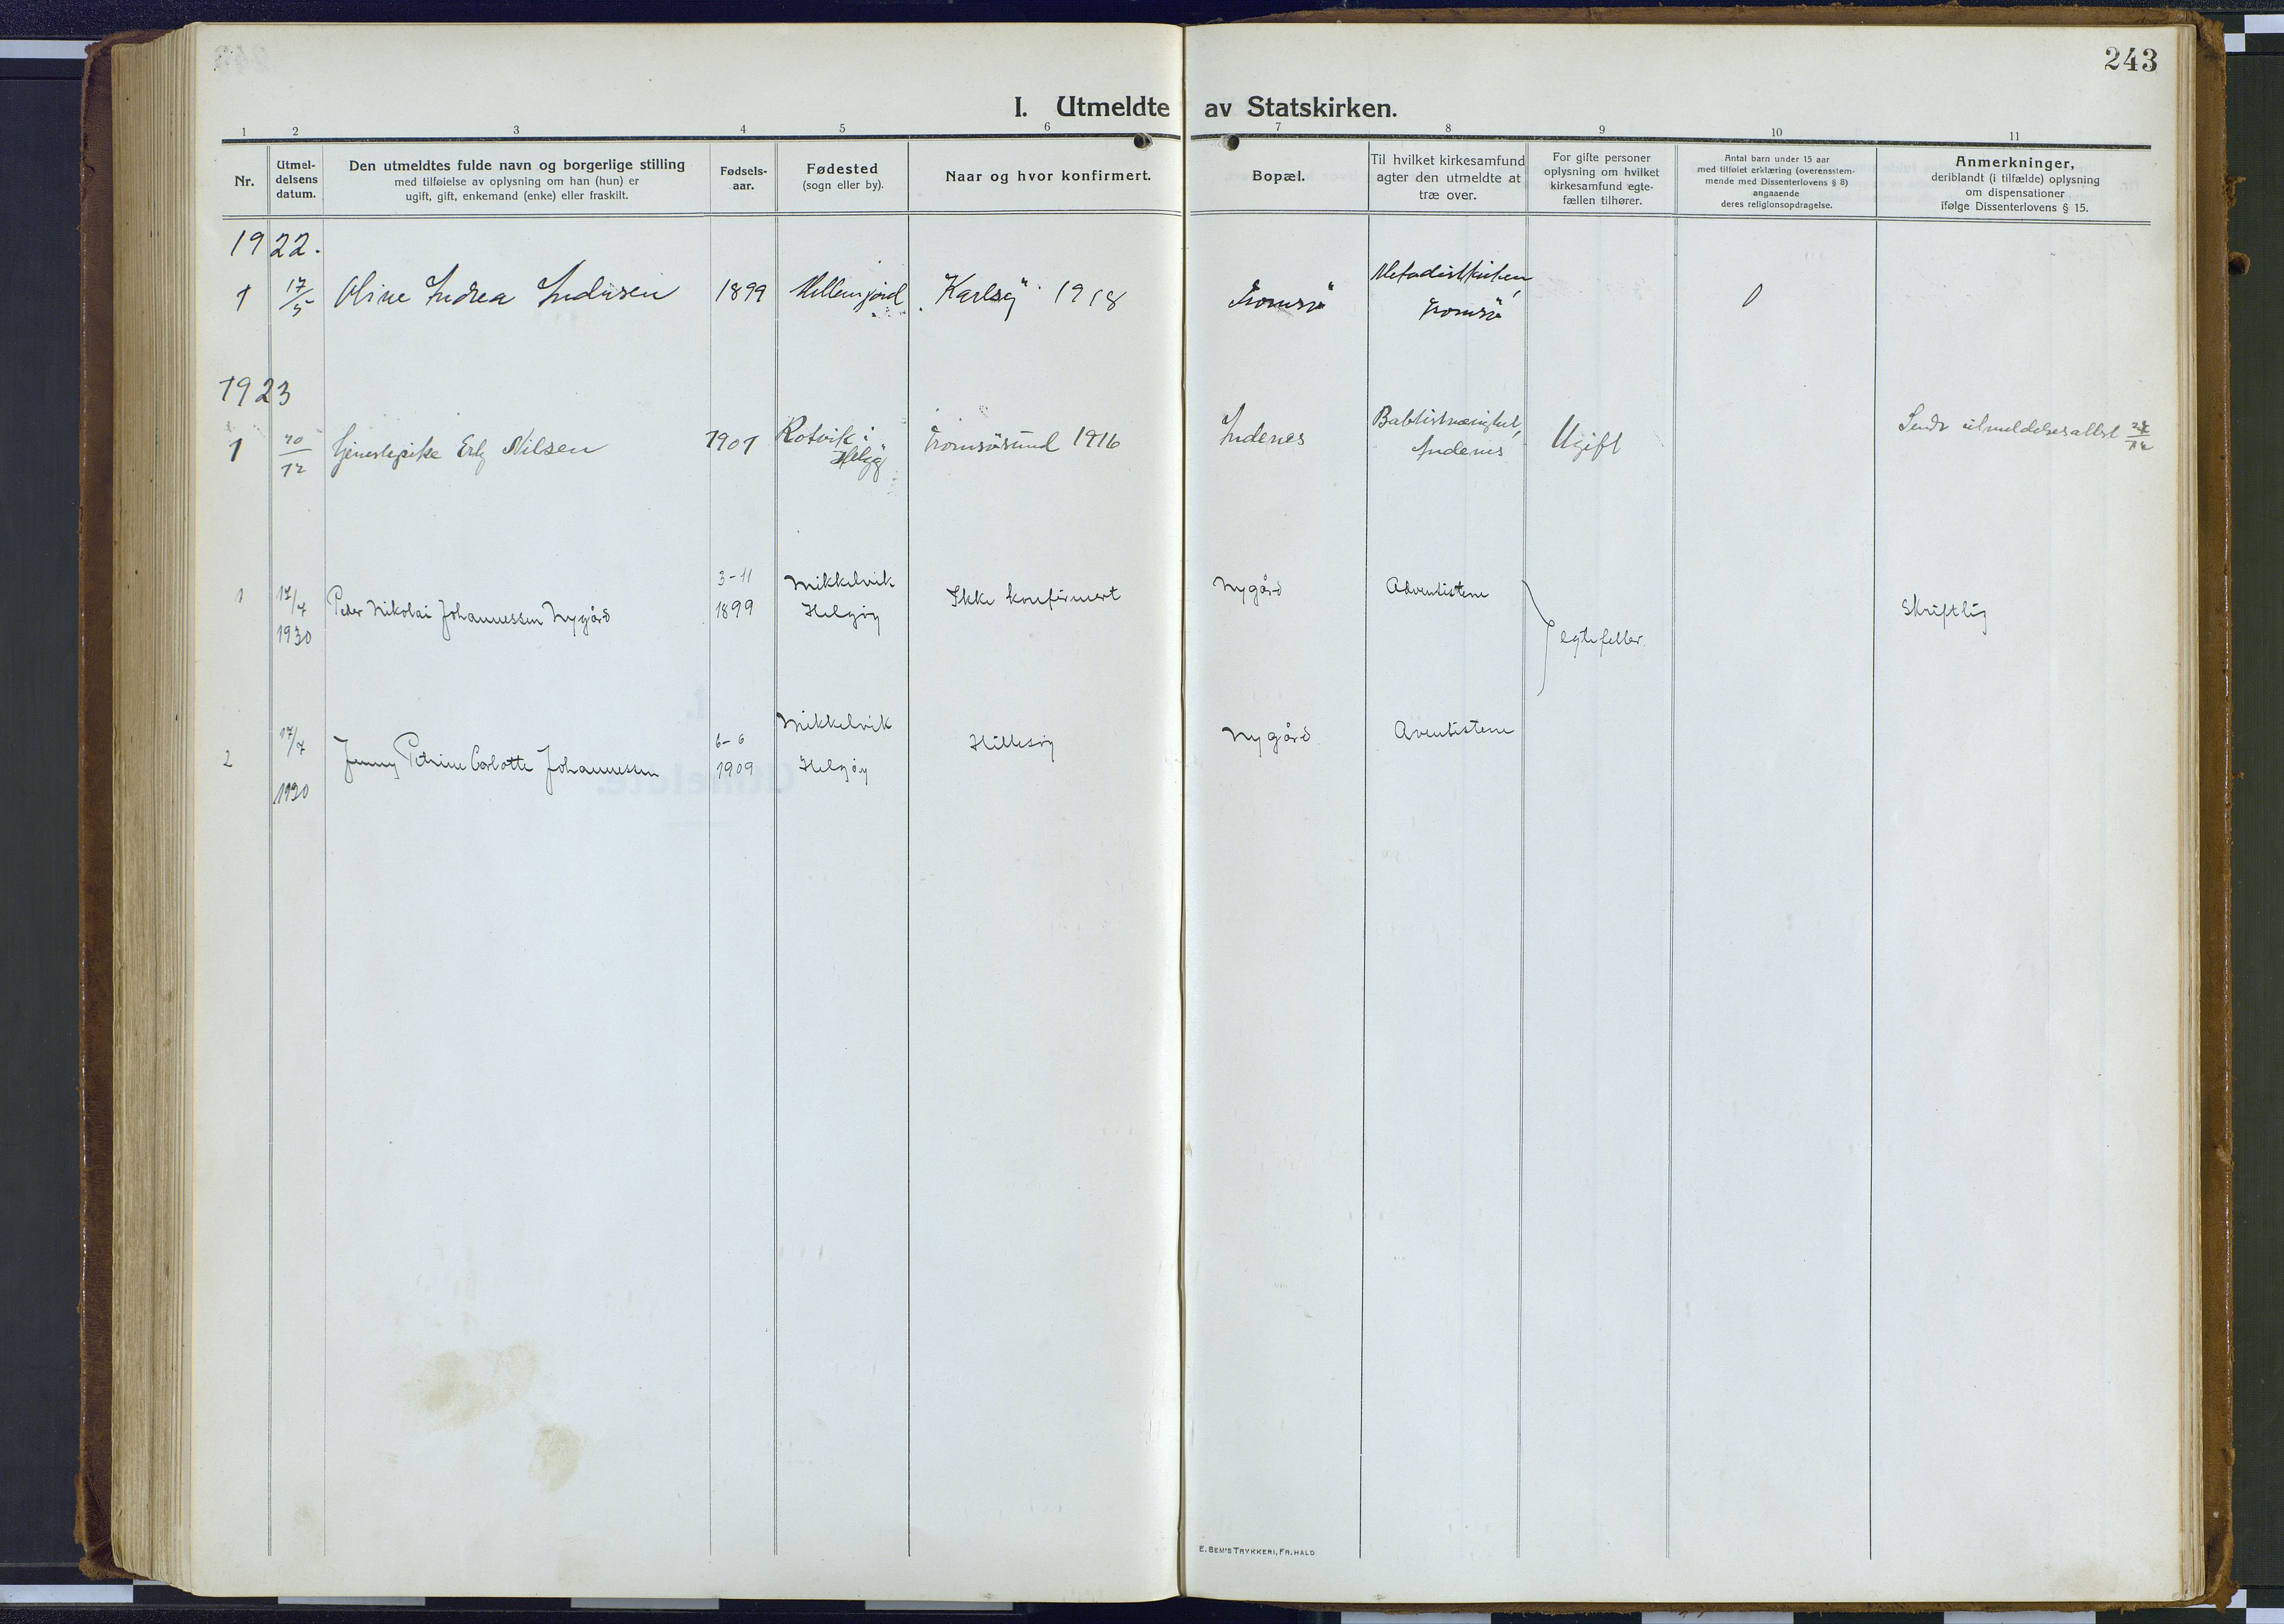 243
I. Utmeldte av Statskirken.
1 2 3 4 5 6 7 8 9 10 11
Nr.
Utmel-
delsens
datum.
Den utmeldtes fulde navn og borgerlige stilling
med tilføielse av oplysning om han (hun) er
ugift, gift, enkemand (enke) eller fraskilt.
Fødsels-
aar.
Fødested
(sogn eller by).
Naar og hvor konfirmert.
Bopæl.
Til hvilket kirkesamfund
agter den utmeldte at
træ over.
For gifte personer
oplysning om hvilket
kirkesamfund egte-
fællen tilhører.
Antal barn under 15 aar
med tilføiet erklæring (overensstem-
mende med Dissenterlovens § 8)
angaaende
deres religionsopdragelse.
Anmerkninger,
deriblandt (i tilfælde) oplysning
om dispensationer
ifølge Dissenterlovens § 15.
1922.
1 17/5 Oline Andrea 1899 Karlsöy 1918 Tromsö Metodistkirken, 0
Tromsö
1923
1 Tjenestepike Erly Nilsen 1901 Rotvik i Tromsösund 1916 Andenes Ugift
12 Helgöy Andenes
Sendt utmeldelsesattest
1 17/7 Peder Nikolai Johannessen Nygård 3-11 Mikkelvik Ikke konfirmert Nygård Adventistene Skriftlig
1930 1899 Helgøy
egtefeller.
2 17/7 Jenny Petrine Carlotte Johannessen 6-6 Mikkelvik Hillesøy Nygård Aventistene
1930 1909 Helgøy
E. BEM'S TRYKKERI, FR. HALD